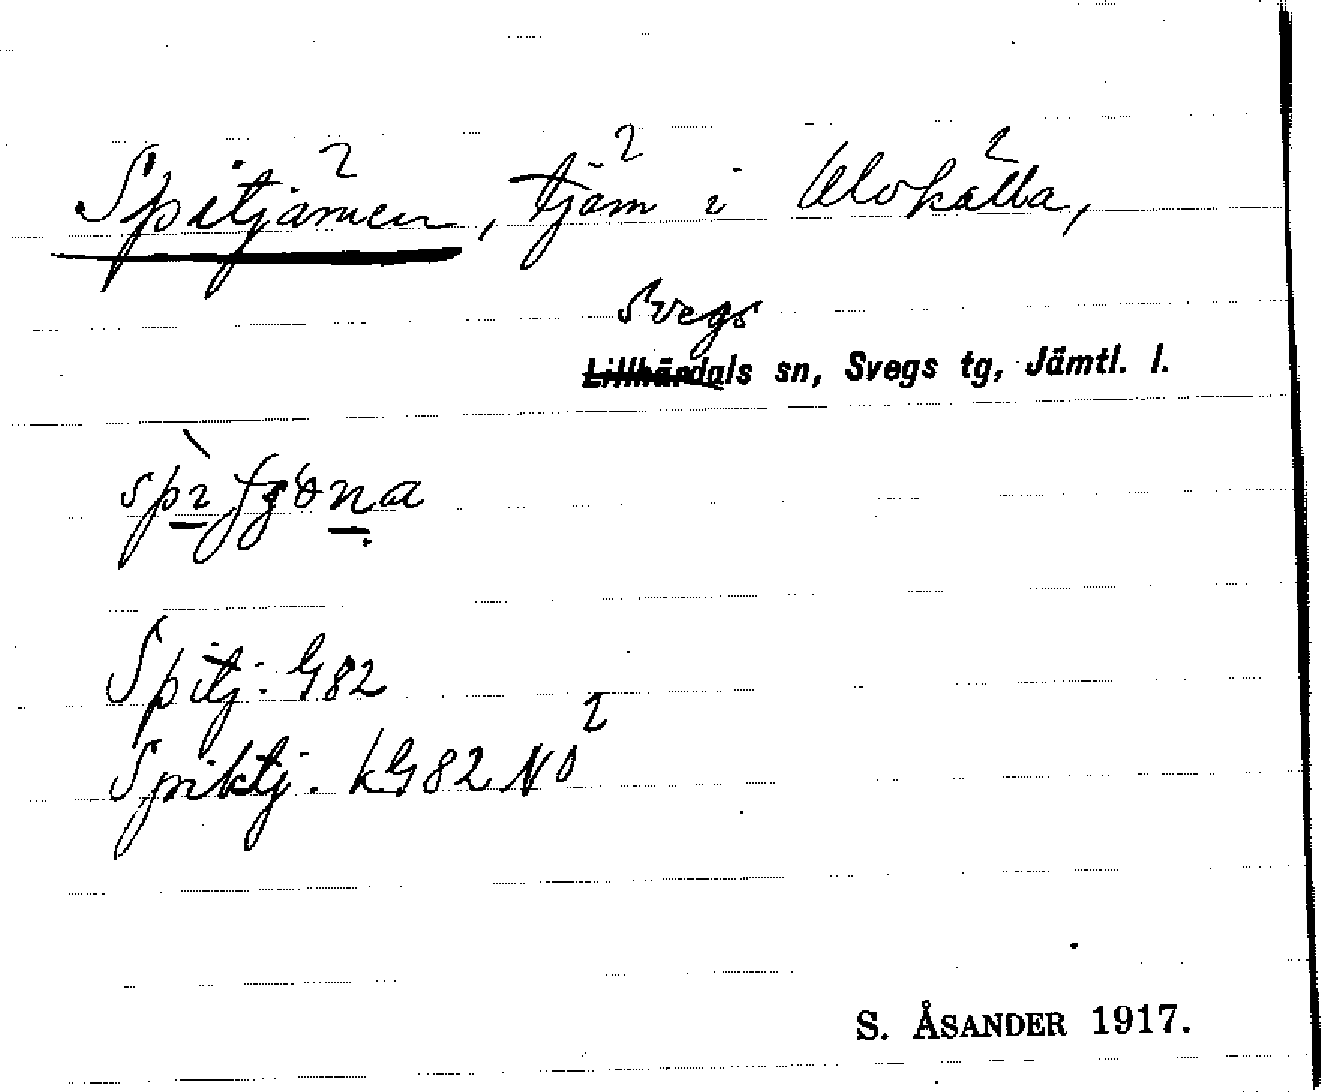 Spitjärnen, tjärn i Älvkälla,
Svegs
Lillhärdals sn, Svegs tg, Jämtl. l.
Spitj. G82
Spiktj. kG82 NO
S. ÅSANDER 1917.